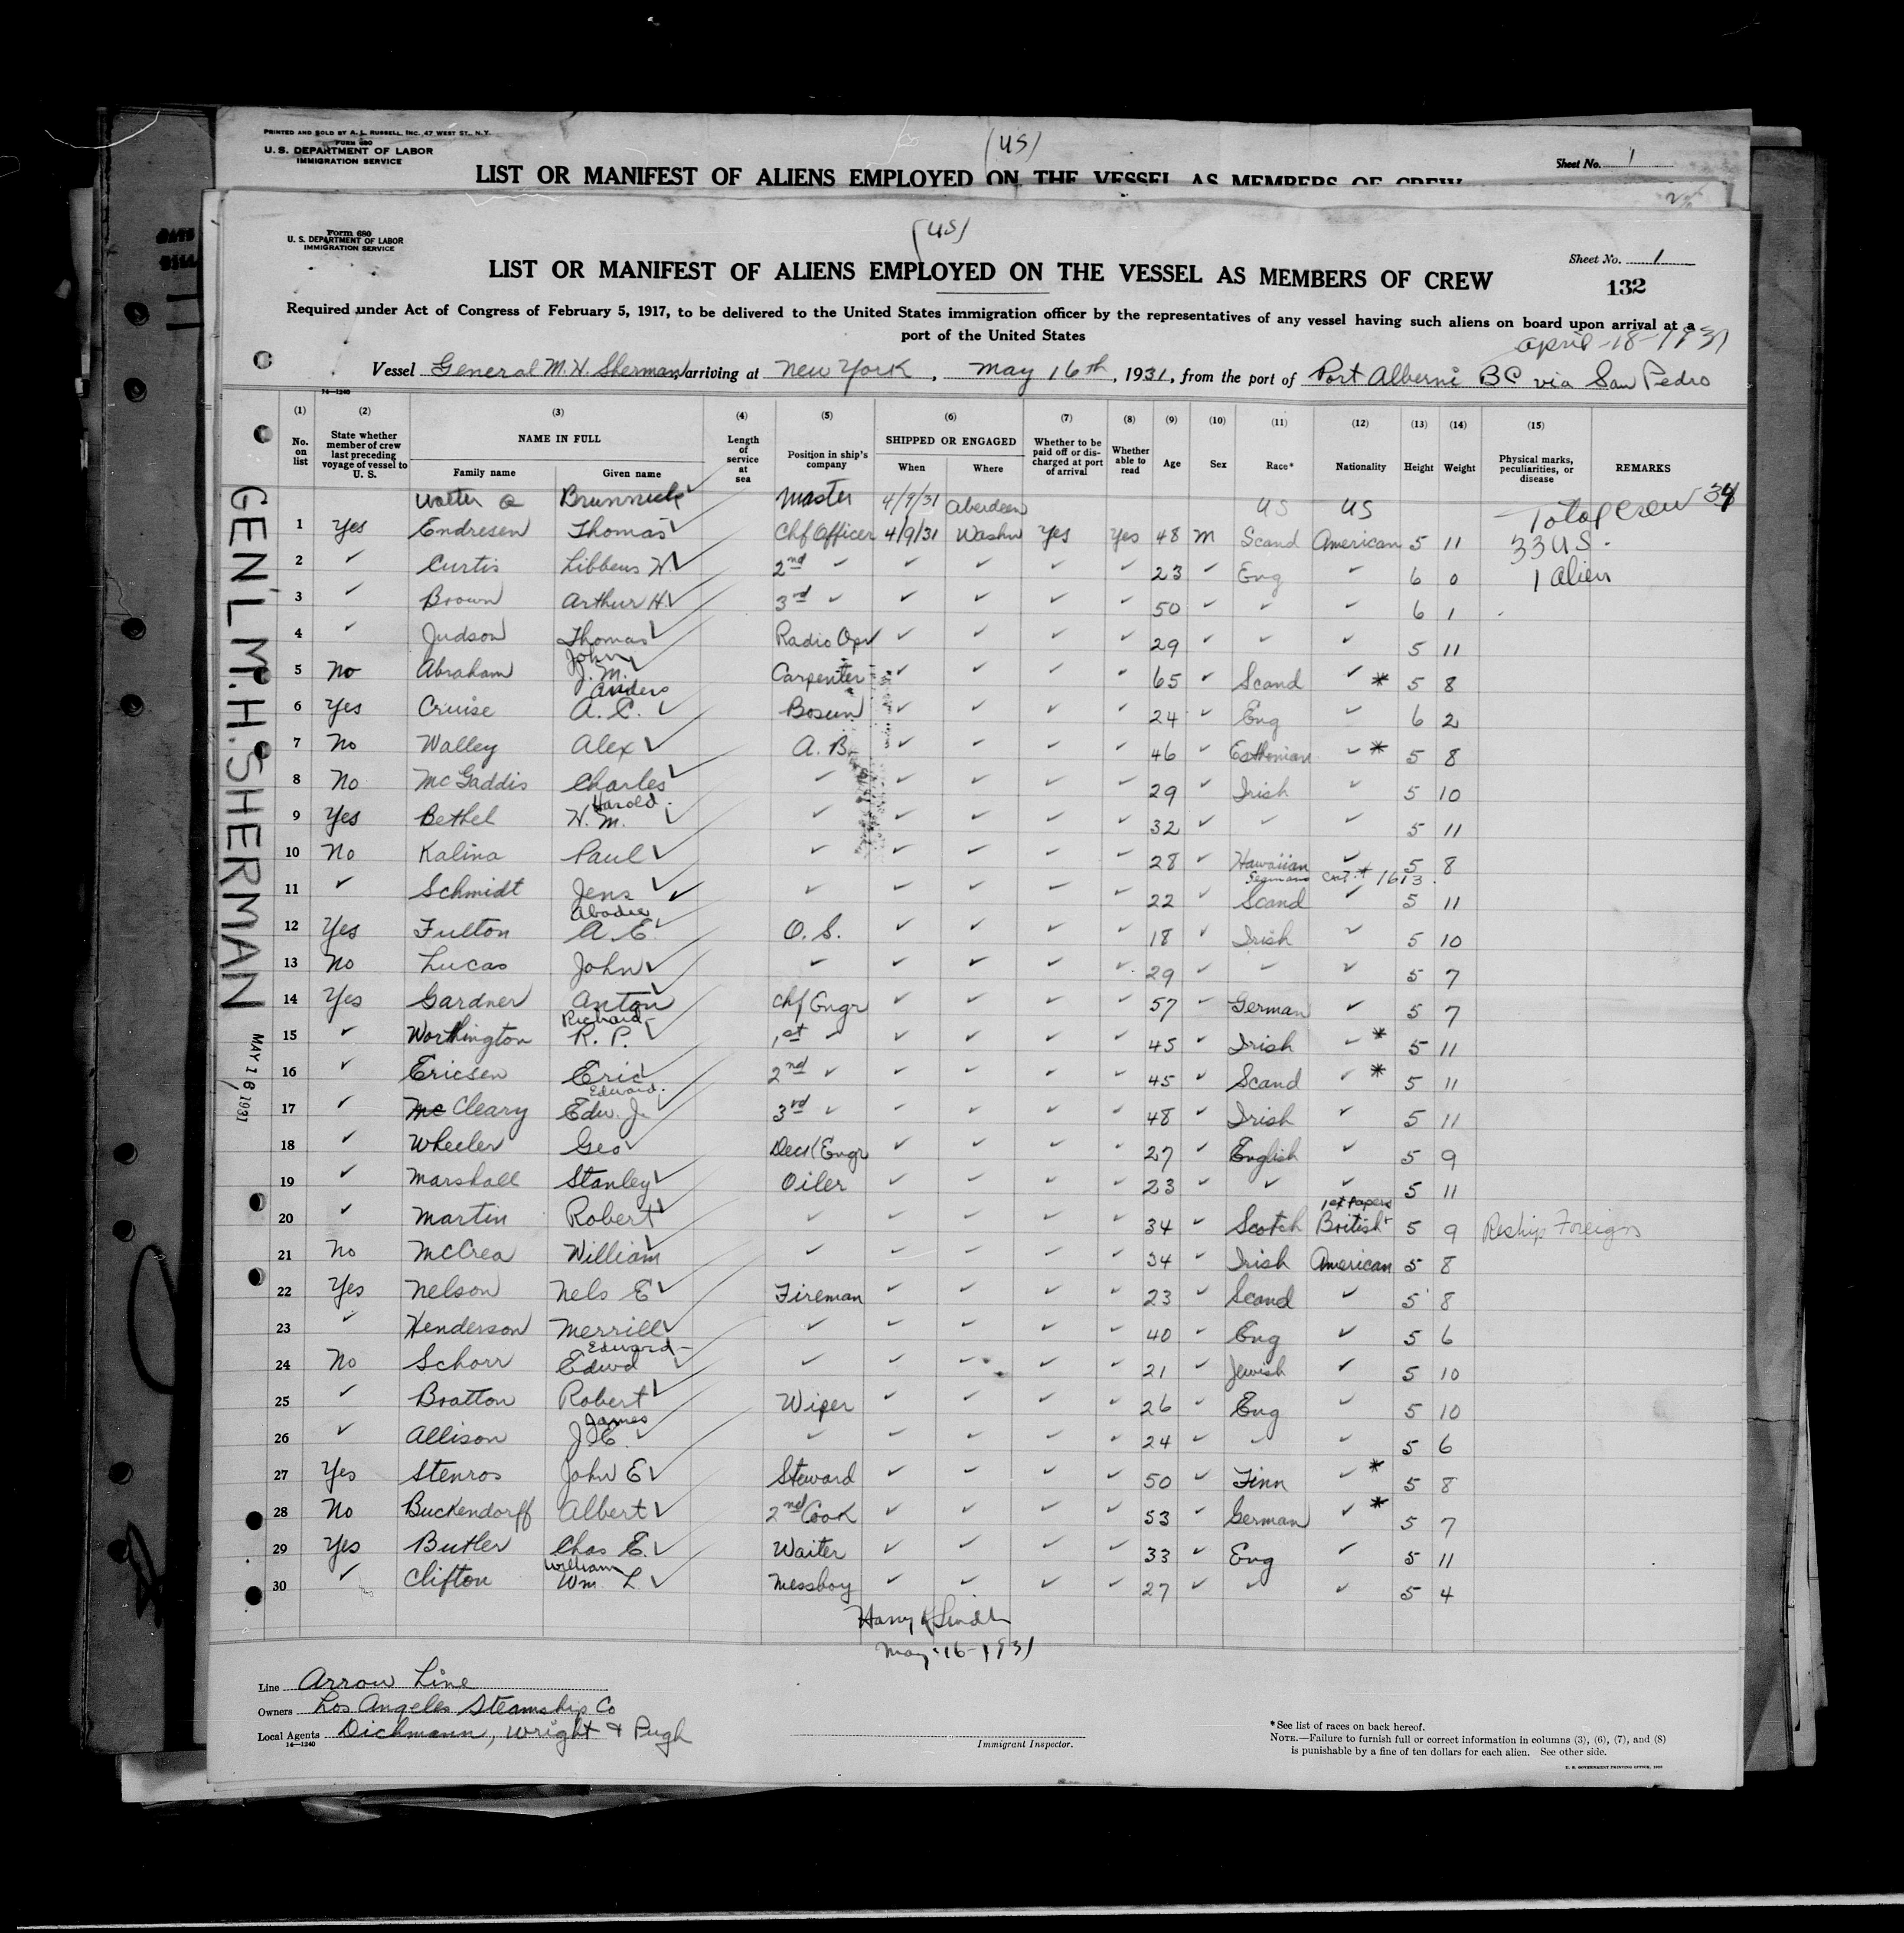 PRINTED AND SOLD BY A. L. RUSSELL, INC., 47 WEST ST., N. Y.
FORM 680
U. S. DEPARTMENT OF LABOR
IMMIGRATION SERVICE
(US)
Sheet No. 1
LIST OR MANIFEST OF ALIENS EMPLOYED ON THE VESSEL AS MEMBERS OF CREW
Form 680
U. S. DEPARTMENT OF LABOR
IMMIGRATION SERVICE
(US)
Sheet No. 1
LIST OR MANIFEST OF ALIENS EMPLOYED ON THE VESSEL AS MEMBERS OF CREW
132
Required under Act of Congress of February 5, 1917, to be delivered to the United States immigration officer by the representatives of any vessel having such aliens on board upon arrival at a
port of the United States
April-18-1931
Vessel General M. H. Sherman, arriving at New York, May 16th, 1931, from the port of Port Alberni BC via San Pedro
14-1240
(1) (2) (3) (4) (5) (6) (7) (8) (9) (10) (11) (12) (13) (14) (15)
No. on list State whether member of crew last preceding voyage of vessel to U. S. NAME IN FULL Family name Given name Length of service at sea Position in ship's company SHIPPED OR ENGAGED When Where Whether to be paid off or discharged at port of arrival Whether able to read Age Sex Race* Nationality Height Weight Physical marks, peculiarities, or disease REMARKS
Walter Brunnick ✓ Master 4/9/31 Aberdeen US US Total Crew 34
1 Yes Endresen Thomas ✓ Chf Officer 4/9/31 Washn Yes Yes 48 M Scand American 5 11 33 US.
2 ✓ Curtis Libbeus W. ✓ 2nd ✓ ✓ ✓ ✓ ✓ 23 ✓ Eng ✓ 6 0 1 Alien
3 ✓ Brown Arthur H. ✓ 3rd ✓ ✓ ✓ ✓ ✓ 50 ✓ ✓ ✓ 6 1
4 ✓ Judson Thomas ✓ Radio Opr ✓ ✓ ✓ ✓ 29 ✓ ✓ ✓ 5 11
5 No Abraham John J. M. ✓ Carpenter ✓ ✓ ✓ ✓ 65 ✓ Scand ✓ * 5 8
6 Yes Cruise Anders A. C. ✓ Bosun ✓ ✓ ✓ ✓ 24 ✓ Eng ✓ 6 2
7 No Walley Alex ✓ A. B. ✓ ✓ ✓ ✓ 46 ✓ Esthonian ✓ * 5 8
8 No McGaddis Charles ✓ ✓ ✓ ✓ ✓ ✓ 29 ✓ Irish ✓ 5 10
9 Yes Bethel Harold H. M. ✓ ✓ ✓ ✓ ✓ ✓ 32 ✓ ✓ ✓ 5 11
10 No Kalina Paul ✓ ✓ ✓ ✓ ✓ ✓ 28 ✓ Hawaiian ✓ 5 8
11 ✓ Schmidt Jens ✓ ✓ ✓ ✓ ✓ ✓ ✓ 22 ✓ Seamans Cert # 1613 Scand ✓ 5 11
12 Yes Fulton A. E. ✓ O. S. ✓ ✓ ✓ ✓ 18 ✓ Irish ✓ 5 10
13 No Lucas John ✓ ✓ ✓ ✓ ✓ ✓ 29 ✓ ✓ ✓ 5 7
14 Yes Gardner Anton ✓ Chf Engr ✓ ✓ ✓ ✓ 57 ✓ German ✓ 5 7
15 ✓ Worthington Richard R. P. ✓ 1st ✓ ✓ ✓ ✓ ✓ 45 ✓ Irish ✓ * 5 11
16 ✓ Ericsen Eric ✓ 2nd ✓ ✓ ✓ ✓ ✓ 45 ✓ Scand ✓ * 5 11
17 ✓ Mc Cleary Edward. Edw. J. 3rd ✓ ✓ ✓ ✓ ✓ 48 ✓ Irish ✓ 5 11
18 ✓ Wheeler Geo ✓ Deck Engr ✓ ✓ ✓ ✓ 27 ✓ English ✓ 5 9
19 ✓ Marshall Stanley ✓ Oiler ✓ ✓ ✓ ✓ 23 ✓ ✓ ✓ 5 11
20 ✓ Martin Robert ✓ ✓ ✓ ✓ ✓ ✓ 34 ✓ Scotch 1st Papers British 5 9 Reship Foreign
21 No McCrea William ✓ ✓ ✓ ✓ ✓ ✓ 34 ✓ Irish American 5 8
22 Yes Nelson Nels E ✓ Fireman ✓ ✓ ✓ ✓ 23 ✓ Scand ✓ 5 8
23 ✓ Henderson Merrill ✓ ✓ ✓ ✓ ✓ ✓ 40 ✓ Eng ✓ 5 6
24 No Schorr Edward Edwd ✓ ✓ ✓ ✓ ✓ ✓ 21 ✓ Jewish ✓ 5 10
25 ✓ Bratton Robert ✓ Wiper ✓ ✓ ✓ ✓ 26 ✓ Eng ✓ 5 10
26 ✓ Allison James J. C. ✓ ✓ ✓ ✓ ✓ ✓ 24 ✓ ✓ ✓ 5 6
27 Yes Stenros John E ✓ Steward ✓ ✓ ✓ ✓ 50 ✓ Finn ✓ * 5 8
28 No Buckendorff Albert ✓ 2nd Cook ✓ ✓ ✓ ✓ 53 ✓ German ✓ * 5 7
29 Yes Butler Chas E. ✓ Waiter ✓ ✓ ✓ ✓ 33 ✓ Eng ✓ 5 11
30 ✓ Clifton William Wm. L ✓ Messboy ✓ ✓ ✓ ✓ 27 ✓ ✓ ✓ 5 4
Harry
May-16-1931
GEN'L M. H. SHERMAN
MAY 16 1931
Line Arrow Line
Owners Los Angeles Steamship Co
Local Agents Dichmann, Wright & Pugh
14-1240
Immigrant Inspector.
* See list of races on back hereof.
NOTE.—Failure to furnish full or correct information in columns (3), (6), (7), and (8)
is punishable by a fine of ten dollars for each alien. See other side.